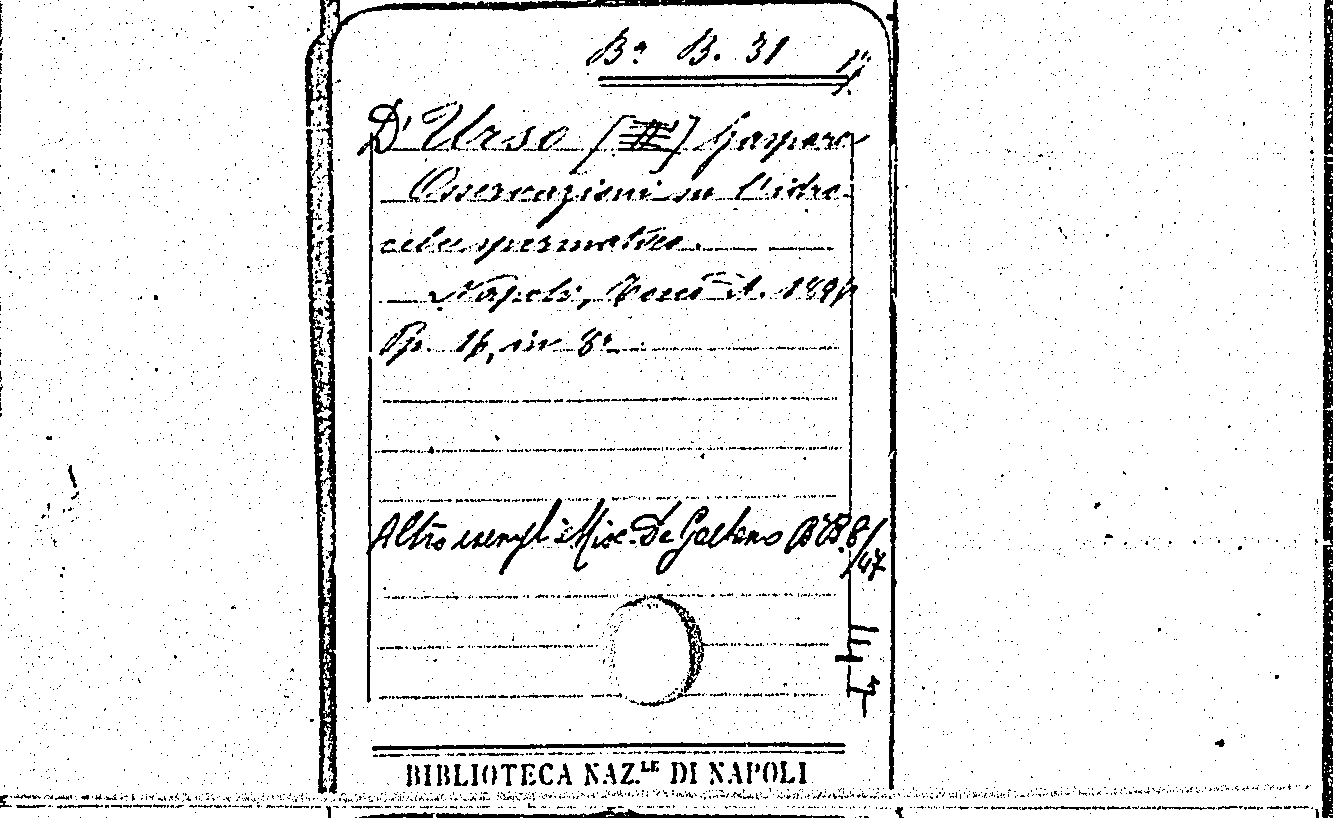 Bª B. 31
D'Urso [ ] Gaspare
Osservazioni su l'idro-
cele spermatico.
Napoli, Tocco A. 189
Pp. 16, in 8º
Altro esempl. è Misc. De Gaetano Bª B. 8/
47
BIBLIOTECA NAZ.LE DI NAPOLI